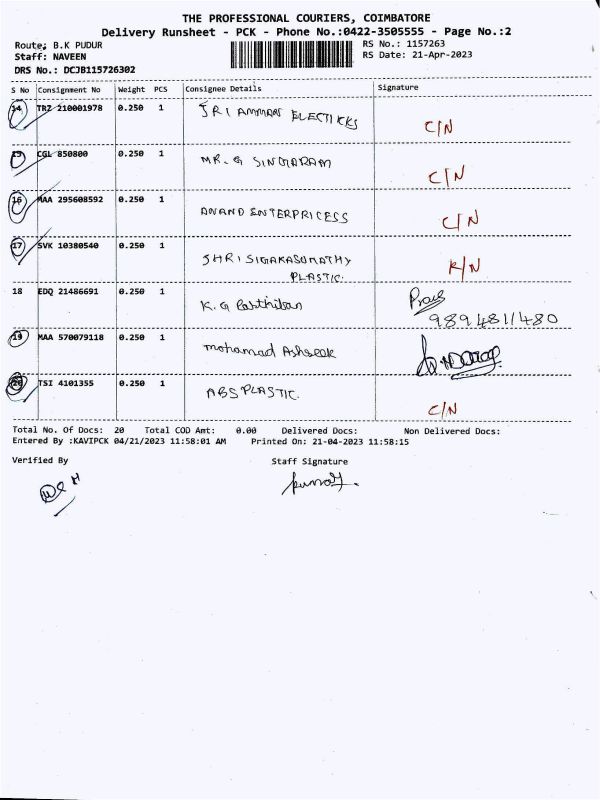 THE PROFESSIONAL COURIERS, COIMBATORE
Delivery Runsheet - PCK - Phone No.:0422-3505555 - Page No.:2
Route: B.K PUDUR RS No.: 1157263
Staff: NAVEEN RS Date: 21-Apr-2023
DRS No.: DCJB115726302
S No Consignment No Weight PCS Consignee Details Signature
14 TRZ 210001978 0.250 1 SRI AMMAN ELECTICKS C/N
15 CGL 850800 0.250 1 MR. G SINGARAM C/N
16 MAA 295608592 0.250 1 ANAND ENTERPRICESS C/N
17 SVK 10380540 0.250 1 SHRI R/N
PLASTIC.
18 EDQ 21486691 0.250 1 K. G Parthiban
9894811480
19 MAA 570079118 0.250 1 mohamad Asheek
20 TSI 4101355 0.250 1 ABS PLASTIC. C/N
Total No. Of Docs: 20 Total COD Amt: 0.00 Delivered Docs: Non Delivered Docs:
Entered By :KAVIPCK 04/21/2023 11:58:01 AM Printed On: 21-04-2023 11:58:15
Verified By Staff Signature